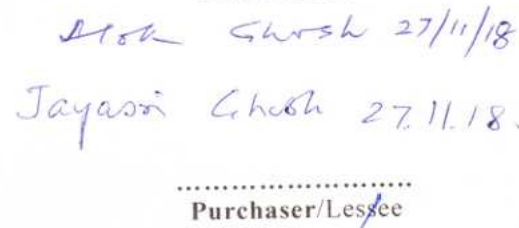 Alok Ghosh 27/11/18
Jayasri Ghosh 27.11.18.
........................
Purchaser/Lessee